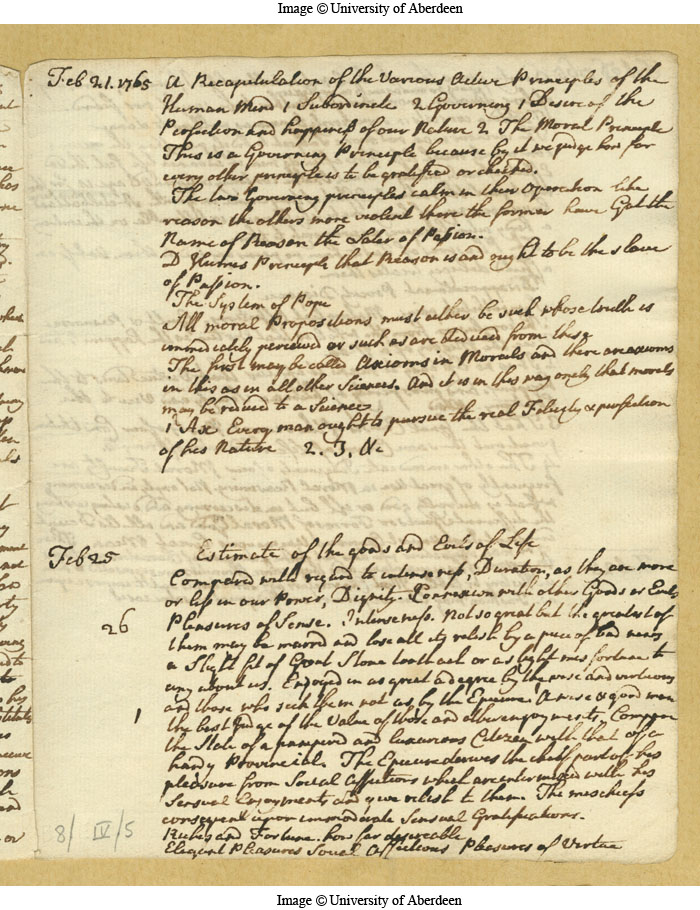 Image © University of Aberdeen
Feb 21. 1765 A Recapitulation of the Various Active Principles of the
Human Mind 1 Subordinate 2 Governing 1 Desire of the
Perfection and happiness of our Nature 2 The Moral Principle
This is a Governing Principle because by it we judge how far
every other principle is to be gratified or checked.
The two Governing principles calm in their Operation like
reason the others more violent thence the former have Got the
Name of Reason the Later of Passion.
D Humes Principle that Reason is and ought to be the slave
of Passion.
The System of Pope
All moral Propositions must either be such whose truth is
immediately perceived or such as are deduced from these
The first may be called Axioms in Morals and there are axioms
in this as in all other Sciences. And it is in this way onely that morals
may be reduced to a Science
1 Ax Every man ought to pursue the real Felicity & perfection
of his Nature 2. 3, &c
Feb 25 Estimate of the goods and Evils of Life
Compared with regard to intenseness, Duration, as they are more
or less in our Power, Dignity. Connexion with other Goods or Evils
26 Pleasures of Sense. Intenseness. Not so great but the greatest of
them may be marred and lose all its relish by a piece of bad news
a Slight fit of Gout Stone tooth ach or a slight misfortune to
any about us. Enjoyed in as great a degree by the wise and virtuous
and those who seek them not as by the Epicure. A wise & good man
1 the best Judge of the Value of those and other enjoyments, Compare
the State of a pampered and luxurious Citizen with that of a
hardy Provincial. The Epicure derives the chief part of his
pleasure from Social Affections which are intermixed with his
Sensual Enjoyments and give relish to them. The mischiefs
consequent upon immoderate Sensual Gratifications.
Riches and Fortune. how far desireable
Elegant Pleasures Social Affections Pleasures of Virtue
8/ IV/5
Image © University of Aberdeen